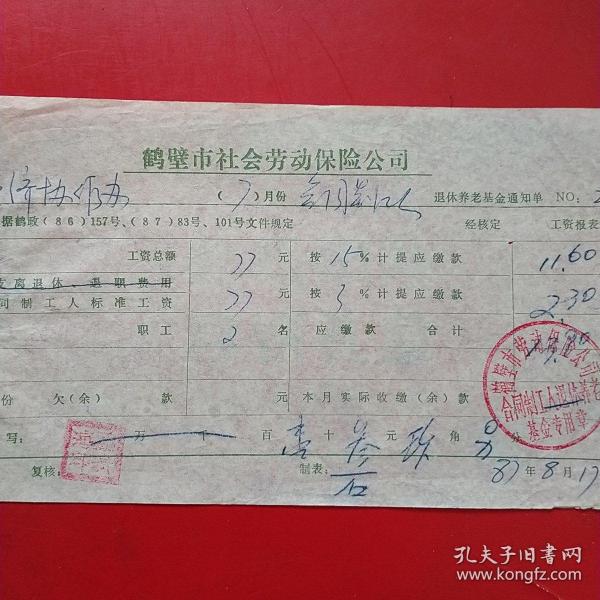 鹤壁市社会劳动保险公司
济协作办 (7)月份 合同制工人 退休养老基金通知单 NO:2
据鹤政(86)157号、(87)83号、101号文件规定 经核定 工资报表
工资总额 77 元 按 15% 计提应缴款 11.60
支离退休、退职费用
同制工人标准工资 77 元 按 3% 计提应缴款 2.30
职工 2 名 应缴款 合计
份 欠(余) 款 元 本月实际收缴(余)款
写: 万 千 百 壹 十 叁 元 玖 角 另 分
复核: 制表: 87年8月17
鹤壁市劳动保险公司
合同制工人退休养老
基金专用章
孔夫子旧书网
www.kongfz.com